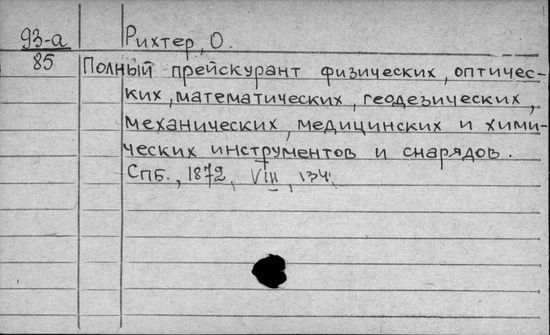 93-а Рихтер, О.
85 Полный прейскурант физических, оптичес-
ких, математических, геодезических,
механических, медицинских и хими-
ческих инструментов и снарядов.
СПБ., 1872, VIII, 134.